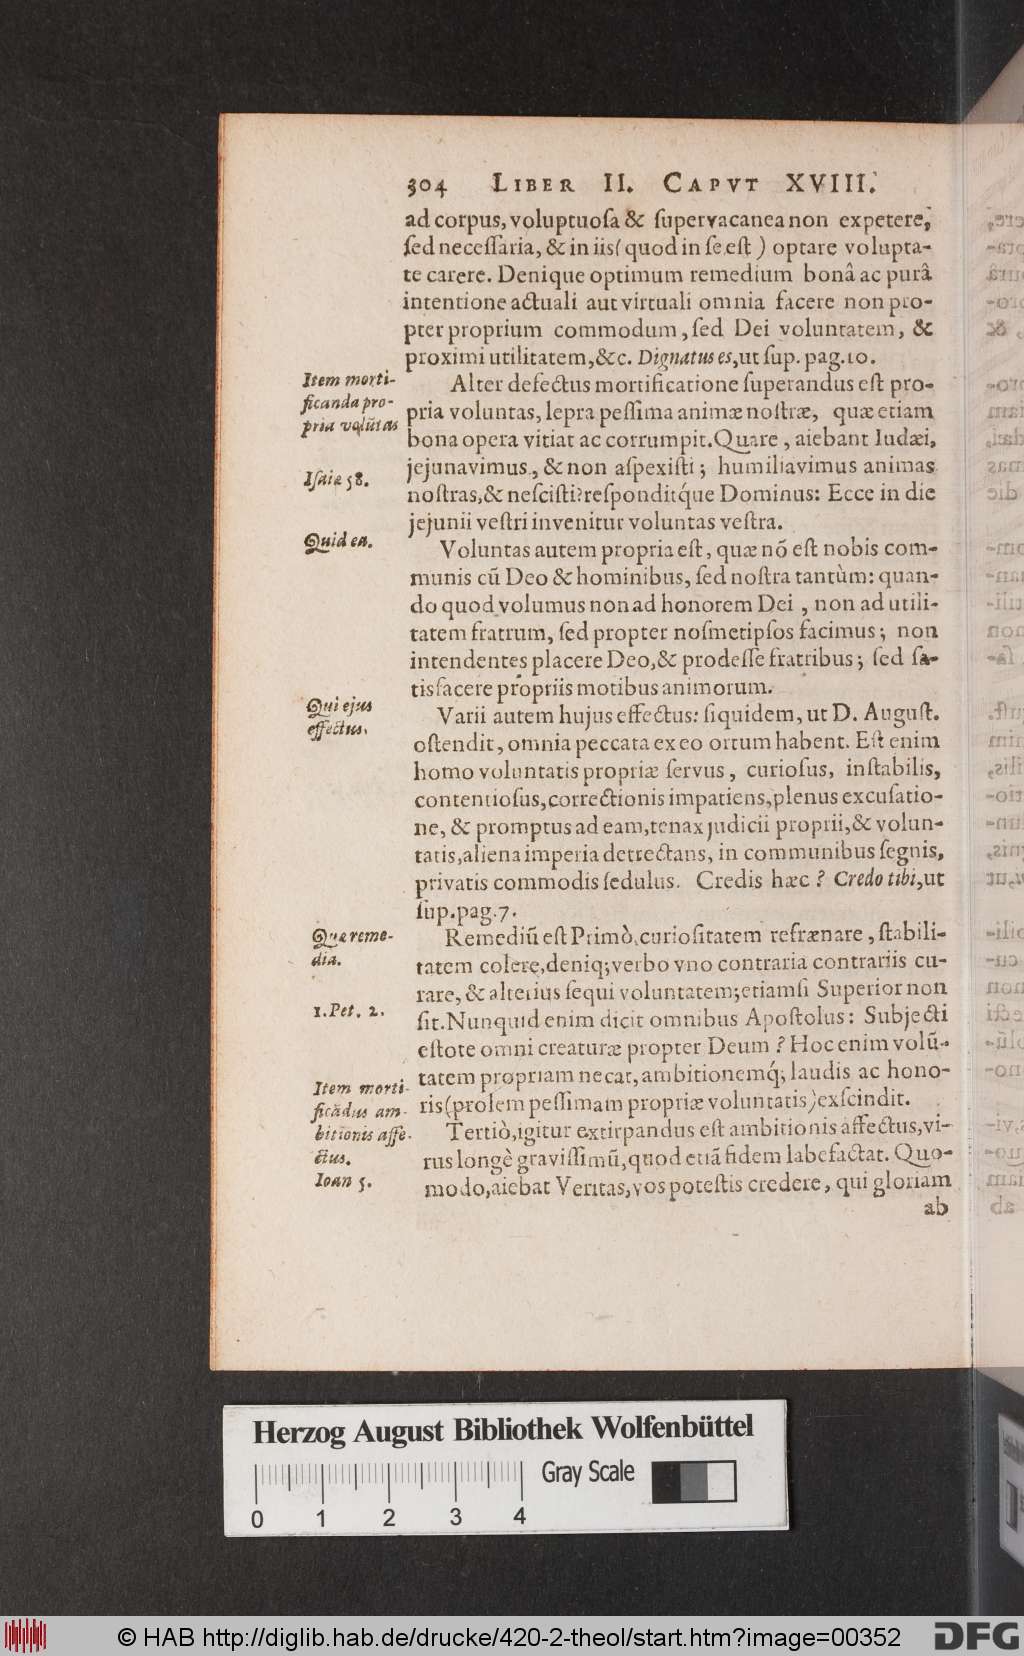 304 LIBER II. CAPVT XVIII.
ad corpus, voluptuoſa & ſupervacanea non expetere,
ſed neceſſaria, & in iis (quod in ſe eſt) optare volupta-
te carere. Denique optimum remedium bonâ ac purâ
intentione actuali aut virtuali omnia facere non pro-
pter proprium commodum, ſed Dei voluntatem, &
proximi utilitatem, &c. Dignatus es, ut ſup. pag. 10.
Item morti-
ficanda pro-
pria volūtas
Alter defectus mortificatione ſuperandus eſt pro-
pria voluntas, lepra peſſima animæ noſtræ, quæ etiam
bona opera vitiat ac corrumpit. Quare, aiebant Iudæi,
jejunavimus, & non aſpexiſti; humiliavimus animas
Iſaiæ 58.
noſtras, & neſciſti? reſponditq́ue Dominus: Ecce in die
jejunii veſtri invenitur voluntas veſtra.
Quid ea.
Voluntas autem propria eſt, quæ nō eſt nobis com-
munis cū Deo & hominibus, ſed noſtra tantùm: quan-
do quod volumus non ad honorem Dei, non ad utili-
tatem fratrum, ſed propter noſmetipſos facimus; non
intendentes placere Deo, & prodeſſe fratribus; ſed ſa-
tisfacere propriis motibus animorum.
Qui ejus
effectus.
Varii autem hujus effectus: ſiquidem, ut D. Auguſt.
oſtendit, omnia peccata ex eo ortum habent. Eſt enim
homo voluntatis propriæ ſervus, curioſus, inſtabilis,
contentioſus, correctionis impatiens, plenus excuſatio-
ne, & promptus ad eam, tenax judicii proprii, & volun-
tatis, aliena imperia detrectans, in communibus ſegnis,
privatis commodis ſedulus. Credis hæc? Credo tibi, ut
ſup. pag. 7.
Quæ reme-
dia.
Remediū eſt Primò, curioſitatem refrænare, ſtabili-
tatem colere, deniq; verbo vno contraria contrariis cu-
rare, & alterius ſequi voluntatem; etiamſi Superior non
1. Pet. 2.
ſit. Nunquid enim dicit omnibus Apoſtolus: Subjecti
eſtote omni creaturæ propter Deum? Hoc enim volū-
tatem propriam necat, ambitionemq́; laudis ac hono-
ris (prolem peſſimam propriæ voluntatis) exſcindit.
Item morti-
ficādus am-
bitionis affe-
ctus.
Ioan 5.
Tertiò, igitur extirpandus eſt ambitionis affectus, vi-
rus longè graviſſimū, quod etiā fidem labefactat. Quo-
modo, aiebat Veritas, vos poteſtis credere, qui gloriam
ab
Herzog August Bibliothek Wolfenbüttel
Gray Scale
0 1 2 3 4
© HAB http://diglib.hab.de/drucke/420-2-theol/start.htm?image=00352
DFG